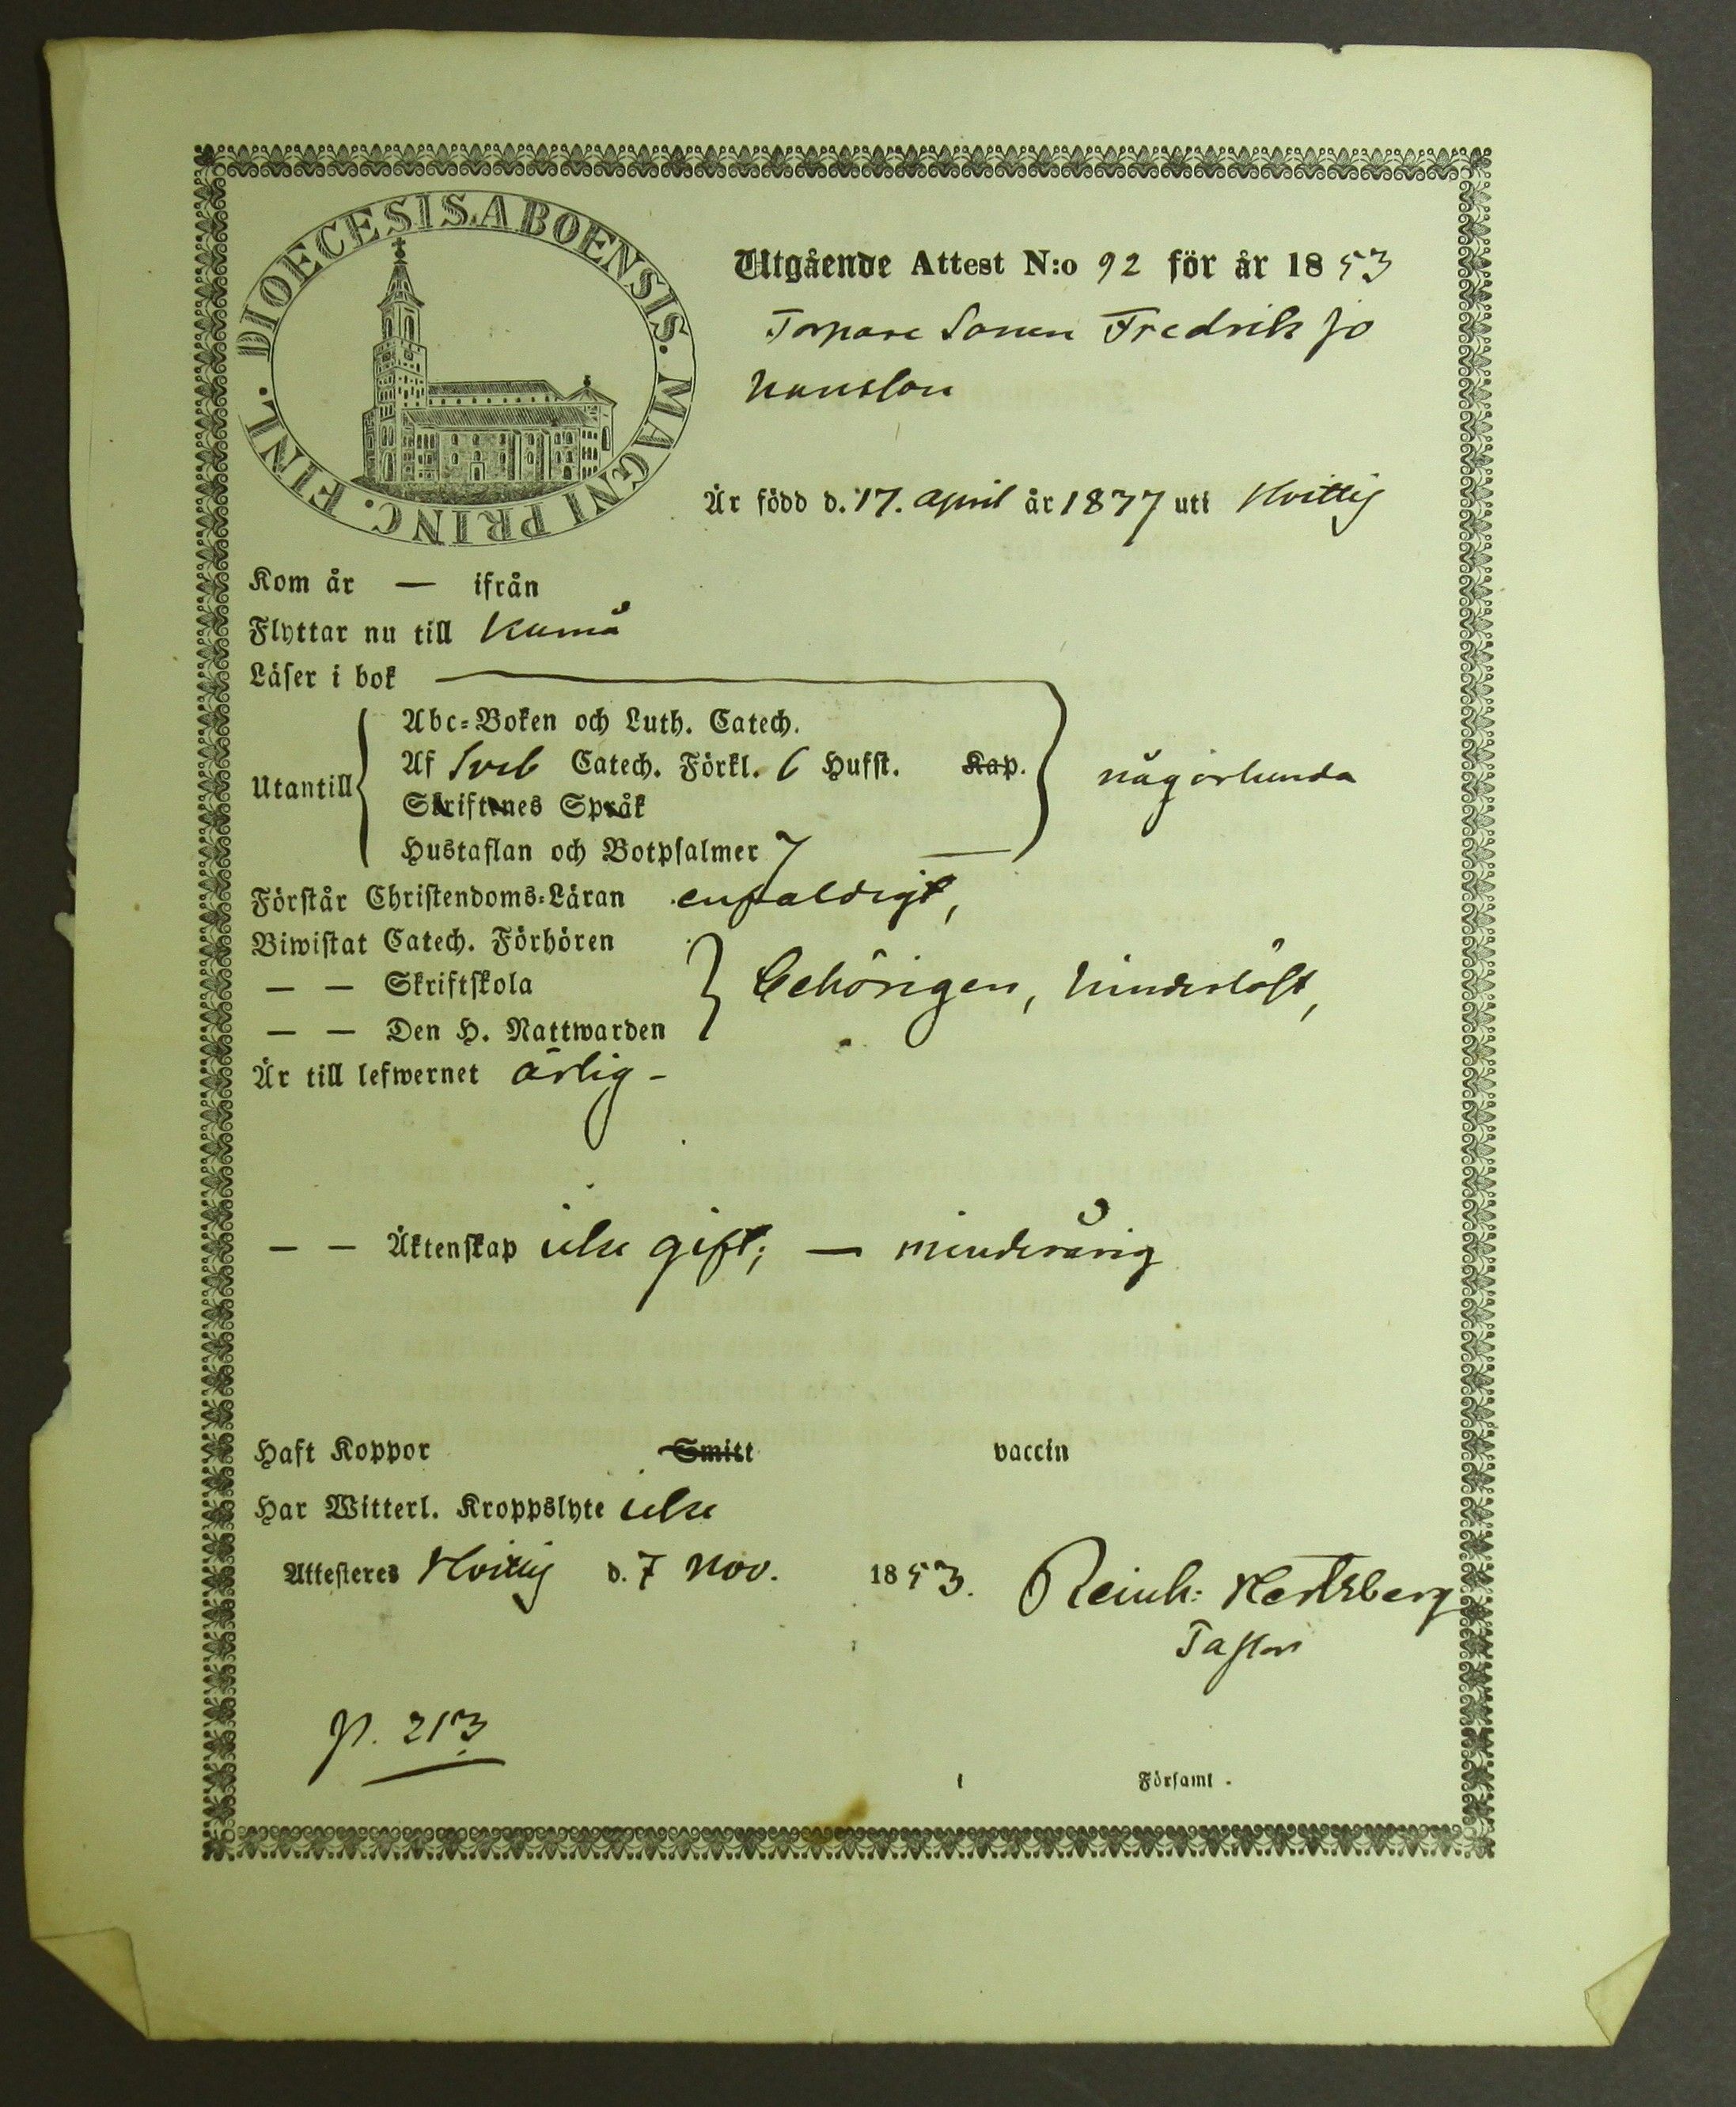 DIOECESIS ABOENSIS. MAGNI PRINC. FINL.
Utgående Attest N:o 92 för år 1853
Torpare Sonen Fredrik Jo
hansson
Är född d. 17. april år 1837 uti Hvittis
Kom år — ifrån
Flyttar nu till Kumå
Läser i bok
Utantill
Abc-Boken och Luth. Catech.
Af Sveb Catech. Förkl. 6 Hufst. Kap.
Skriftenes Språk
Hustaflan och Botpsalmer 7 —
någorlunda
Förstår Christendoms-Läran enfaldigt,
Biwistat Catech. Förhören
— — Skriftskola
— — Den H. Nattwarden
behörigen, hinderlöst,
Är till lefwernet ärlig -
— — Äktenskap icke gift; — minderårig
Haft Koppor Smitt vaccin
Har Witterl. Kroppslyte icke
Attesteres Hvittis d. 7 Nov. 1853. Reinh: Hertzberg
Pastor
p. 213
i Församl.